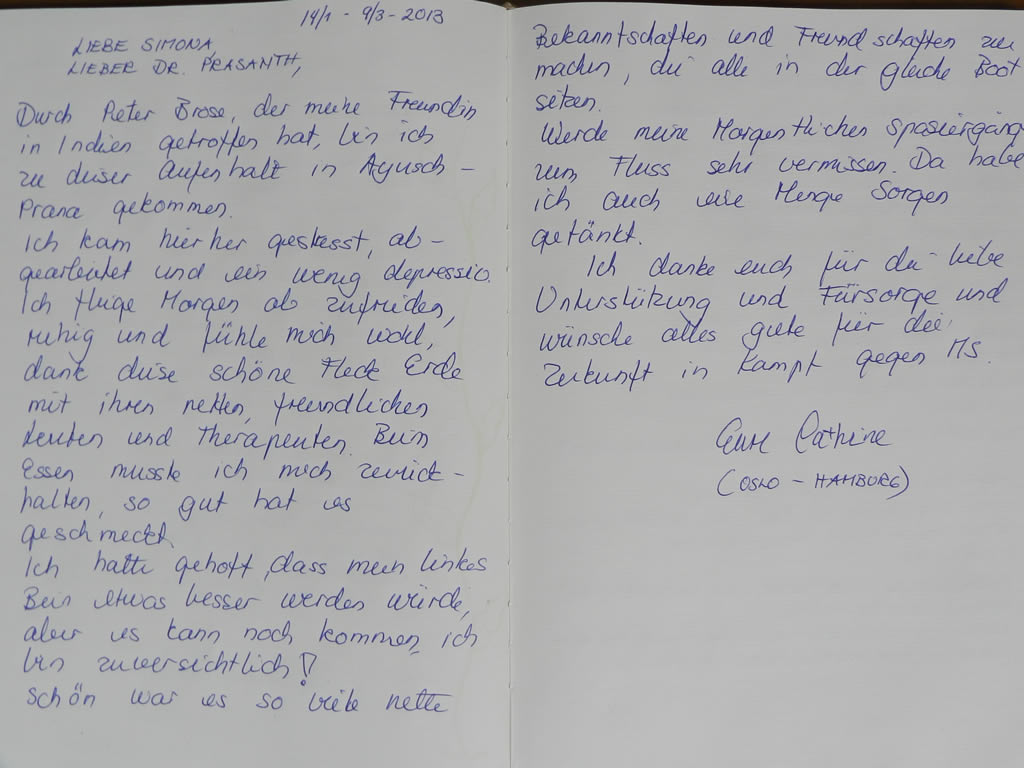 14/1 - 9/3 - 2013
LIEBE SIMONA,
LIEBER DR. PRASANTH,
Durch Pieter Brose, der meine Freundin
in Indien getroffen hat, bin ich
zu dieser Aufenhalt in Ayusch -
Prana gekommen.
Ich kam hierher gestesst, ab -
gearbeitet und ein wenig depressiv.
Ich fliege Morgen ab zufrieden,
ruhig und fühle mich wohl,
dank diese schöne Fleck Erde
mit ihren netten, freundlichen
Leuten und Therapeuten. Beim
Essen musste ich mich zurück -
halten, so gut hat es
geschmeckt.
Ich hatte gehoft, dass mein linkes
Bein etwas besser werden würde,
aber es kann noch kommen, ich
bin zuversichtlich!
Schön war es so viele nette
Bekanntschaften und Freundschaften zu
machen, die alle in der gleiche Boot
sitzen.
Werde meine Morgentlichen Spasiergänge
zum Fluss sehr vermissen. Da habe
ich auch eine Menge Sorgen
getänkt.
Ich danke euch für die liebe
Unterstützung und Fürsorge und
wünsche alles gute für die
Zukunft in Kampf gegen MS.
Eure Cathrine
(OSLO - HAMBURG)